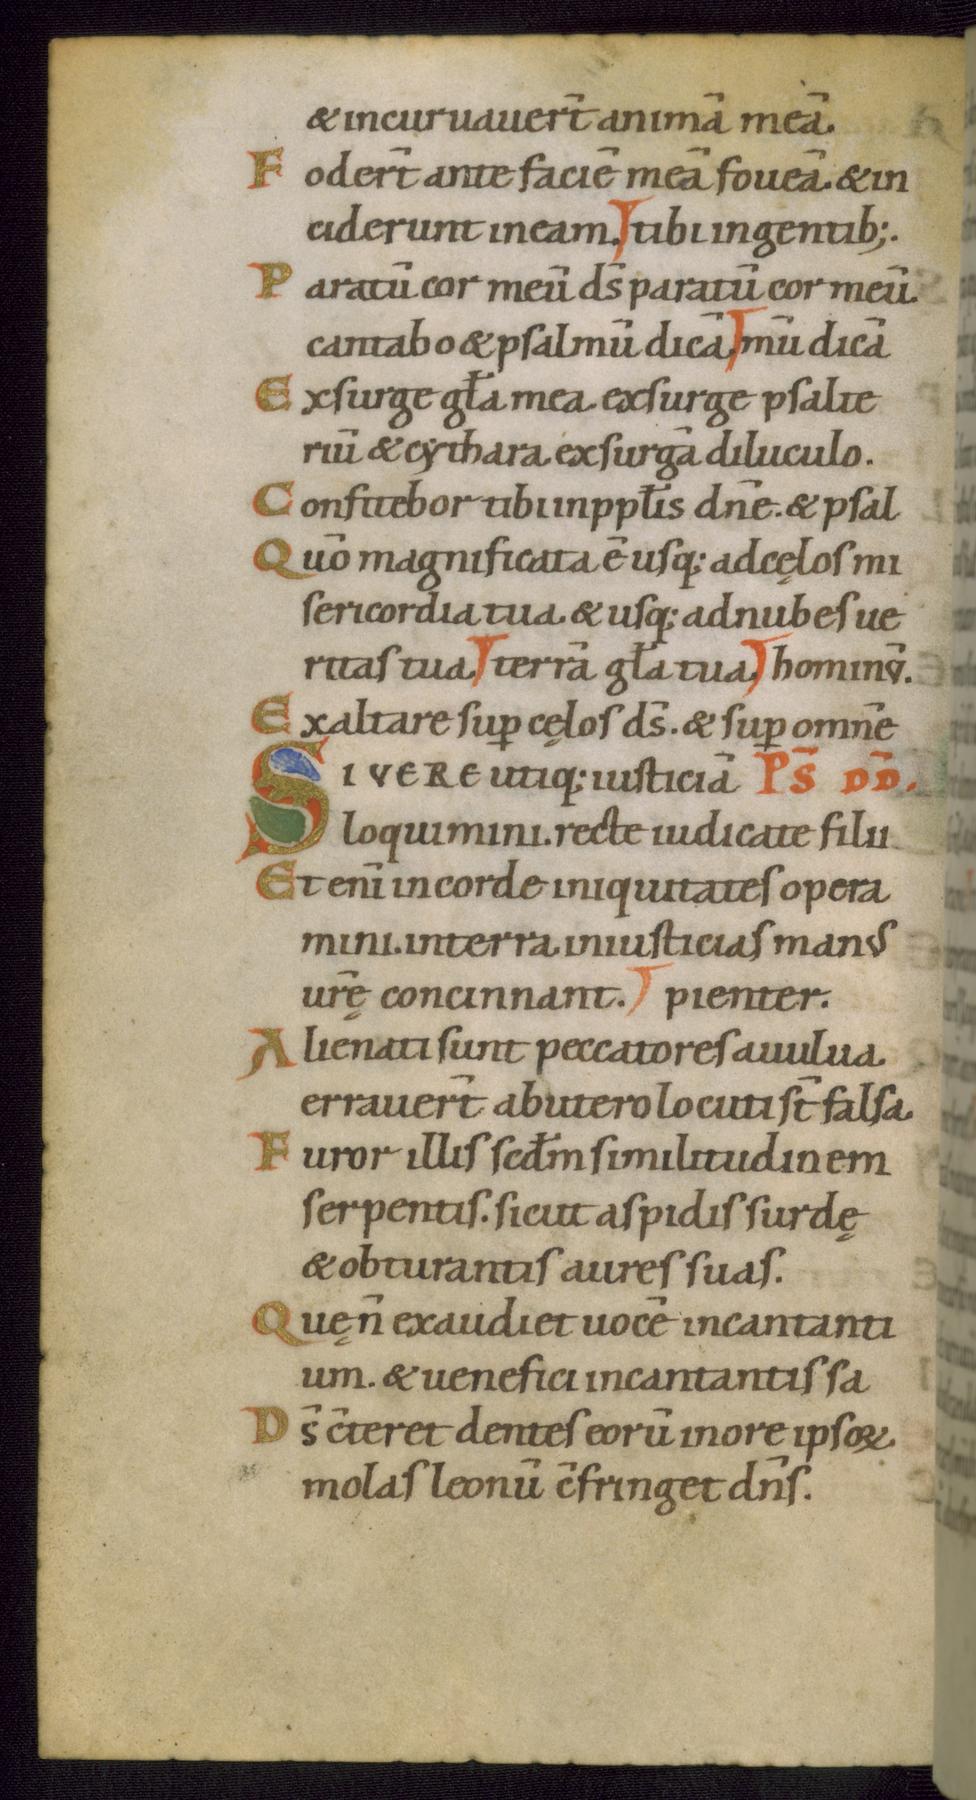 & incuruauer̄t animā meā.
Foder̄t ante faciē meā foueā. & in
ciderunt in eam. tibi in gentib;.
Paratū cor meū ds̄ paratū cor meū.
cantabo & psalmū dicā. mū dicā
Exsurge gła mea exsurge psalte
riū & cythara exsurgā diluculo.
Confitebor tibi in pplis dn̄e. & psal
Quō magnificata ē usq; ad cęlos mi
sericordia tua. & usq; ad nubes ue
ritas tua. terrā gła tua. hominū.
Exaltare sup cęlos ds̄. & sup omn̄e
SI VERE utiq; iusticiā PS̄ DD̄.
loquimini. recte iudicate filii
Et enī in corde iniquitates opera
mini. in terra iniusticias manus
ur̄ę concinnant. pienter.
Alienati sunt peccatores a uulua.
errauer̄t ab utero locuti st̄ falsa.
Furor illis scdm similitudinem
serpentis. sicut aspidis surdę
& obturantis aures suas.
Quę n̄ exaudiet uocē incantanti
um. & uenefici incantantis sa
Ds̄ c̄teret dentes eorū in ore ipsoꝝ.
molas leonū c̄fringet dn̄s.